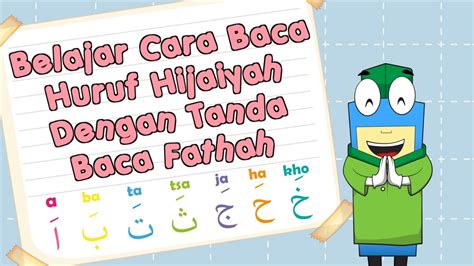 Belajar Cara Baca
Huruf Hijaiyah
Dengan Tanda
Baca Fathah
a ba ta tsa ja ha kho
اَ بَ تَ ثَ جَ حَ خَ